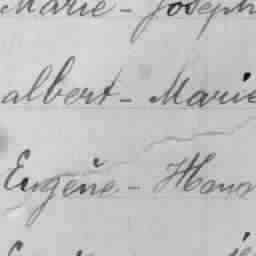 Marie - Joseph
albert - Marie
Eugène -